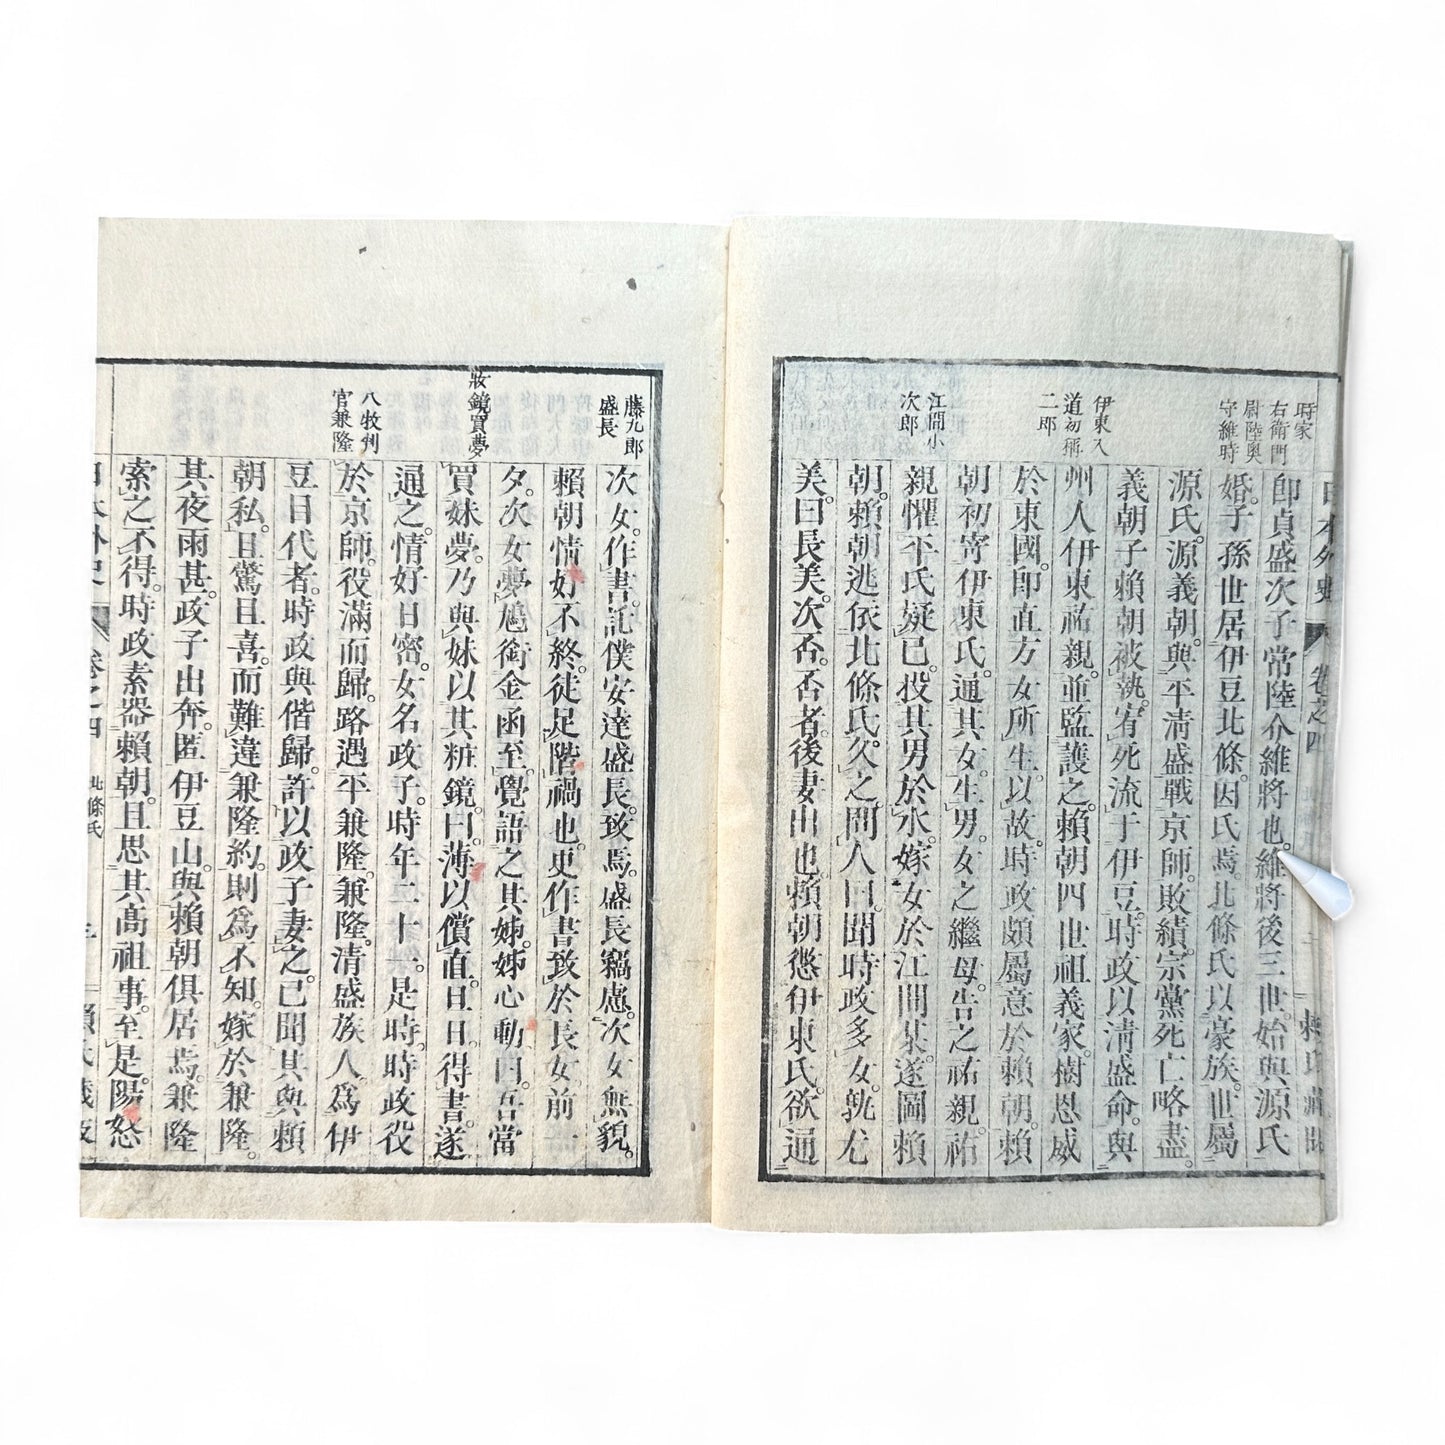 時家
右衛門
尉陸奥
守維時
伊東入
道初稱
二郎
江間小
次郎
即貞盛次子常陸介維將也。維將後三世。始與源氏
婚。子孫世居伊豆北條。因氏焉。北條氏以豪族。世屬
源氏。源義朝。與平淸盛戰京師。敗績。宗黨死亡略盡。
義朝子賴朝被執。宥死流于伊豆。時政以淸盛命。與
州人伊東祐親。並監護之。賴朝四世祖義家。樹恩威
於東國。即直方女所生。以故。時政頗屬意於賴朝。賴
朝初寄伊東氏。通其女。生男。女之繼母。告之祐親。祐
親懼平氏疑己。投其男於水。嫁女於江間某。遂圖賴
朝。賴朝逃依北條氏。久之。問人曰。聞時政多女。孰尤
美。曰長美。次否。否者。後妻出也。賴朝懲伊東氏。欲通
藤九郎
盛長
妝鏡買夢
八牧判
官兼隆
次女。作書。託僕安達盛長。致焉。盛長竊慮。次女無貌。
賴朝情好不終。徒足階禍也。更作書。致於長女。前一
夕。次女夢。鳩銜金函至。覺語之其姊。姊心動曰。吾當
買妹夢。乃與妹以其粧鏡曰。薄以償直。旦日。得書。遂
通之。情好日密。女名政子。時年二十一。是時。時政役
於京師。役滿而歸。路遇平兼隆。兼隆。淸盛族人。爲伊
豆目代者。時政與偕歸。許以政子妻之。已聞其與賴
朝私。且驚且喜。而難違兼隆約。則爲不知。嫁於兼隆。
其夜雨甚。政子出奔。匿伊豆山。與賴朝俱居焉。兼隆
索之不得。時政素器賴朝。且思其高祖事。至是。陽怒
日本外史
卷之四
北條氏
賴氏藏板